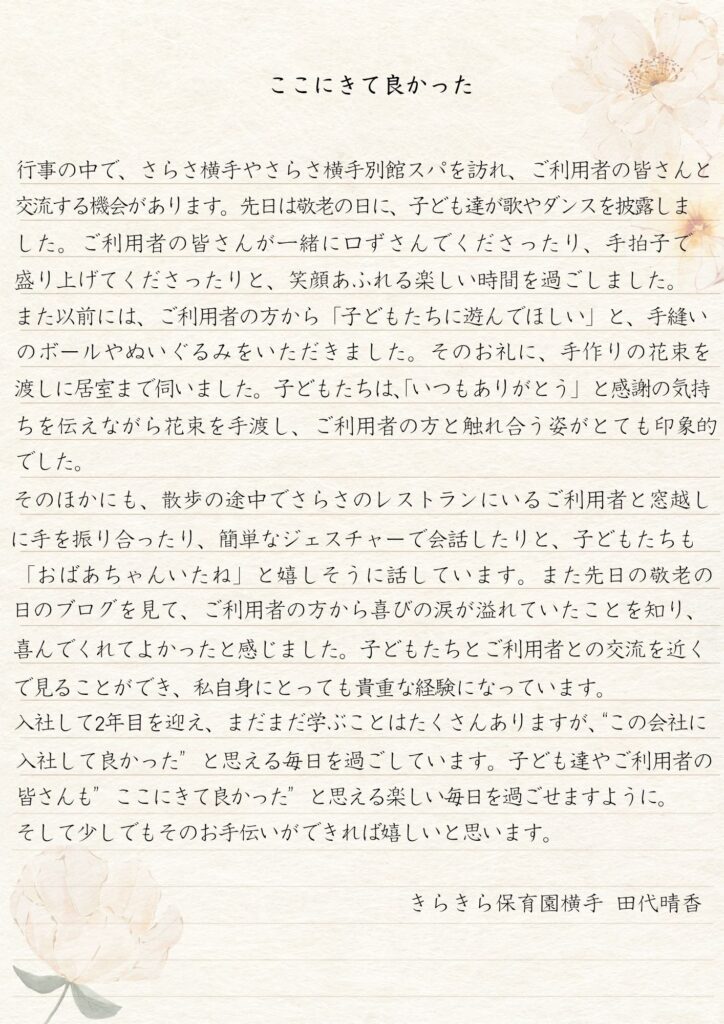 ここにきて良かった
行事の中で、さらさ横手やさらさ横手別館スパを訪れ、ご利用者の皆さんと
交流する機会があります。先日は敬老の日に、子ども達が歌やダンスを披露しま
した。ご利用者の皆さんが一緒に口ずさんでくださったり、手拍子で
盛り上げてくださったりと、笑顔あふれる楽しい時間を過ごしました。
また以前には、ご利用者の方から「子どもたちに遊んでほしい」と、手縫い
のボールやぬいぐるみをいただきました。そのお礼に、手作りの花束を
渡しに居室まで伺いました。子どもたちは、「いつもありがとう」と感謝の気持
ちを伝えながら花束を手渡し、ご利用者の方と触れ合う姿がとても印象的
でした。
そのほかにも、散歩の途中でさらさのレストランにいるご利用者と窓越し
に手を振り合ったり、簡単なジェスチャーで会話したりと、子どもたちも
「おばあちゃんいたね」と嬉しそうに話しています。また先日の敬老の
日のブログを見て、ご利用者の方から喜びの涙が溢れていたことを知り、
喜んでくれてよかったと感じました。子どもたちとご利用者との交流を近く
で見ることができ、私自身にとっても貴重な経験になっています。
入社して2年目を迎え、まだまだ学ぶことはたくさんありますが、“この会社に
入社して良かった”と思える毎日を過ごしています。子ども達やご利用者の
皆さんも”ここにきて良かった”と思える楽しい毎日を過ごせますように。
そして少しでもそのお手伝いができれば嬉しいと思います。
きらきら保育園横手 田代晴香